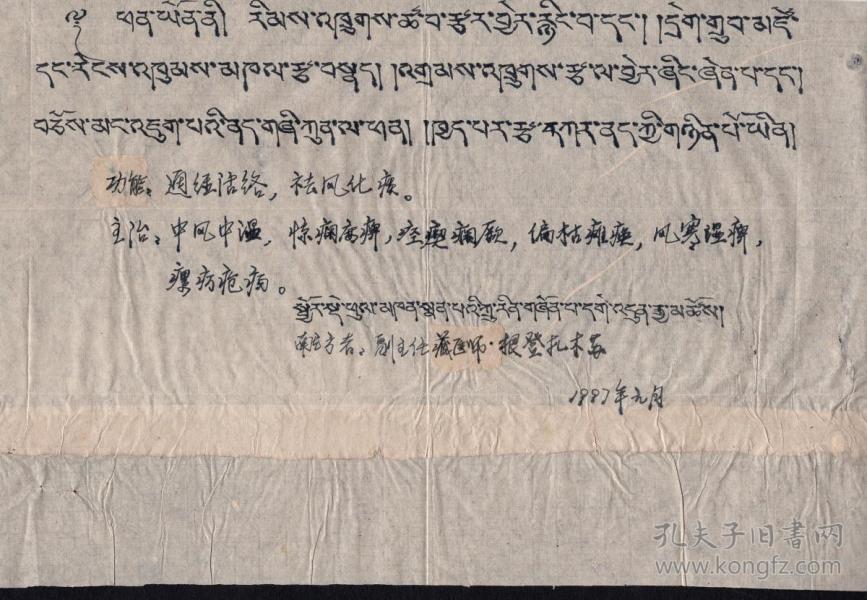 ༄༅། ཕན་ཡོན་ནི། རིམས་འཁྲུགས་ཚ་བ་རྩར་བྱེར་རྙིང་བ་དང་། །དྲེག་གྲུབ་མཛེ
དང་རེངས་འཁུམས་མཁལ་རྩ་བསྣད། །འགྲམས་འཁྲུགས་རྩ་ལ་བྱེར་ཞིང་ཞེན་པ་དང་།
བཅོས་མང་འདུག་པའི་ནད་གཞི་ཀུན་ལ་ཕན། །ཁྱད་པར་རྩ་དཀར་ནད་ཀྱི་གཉེན་པོ་ཡིན།
功能：通经活络，祛风化痰。
主治：中风中湿，惊痫高痹，痉痫厥，偏枯瘫痪，风寒湿痹，
疮病。
སྦྱོར་སྡེ་ཕུལ་མཁན་སྨན་པའི་ཀྲུ་རིན་གཞོན་པ་དགེ་འདུན་རྒྱ་མཚོས།
献方者：副主任藏医师·根登扎木苏
1997年元月
孔夫子旧书网
www.kongfz.com